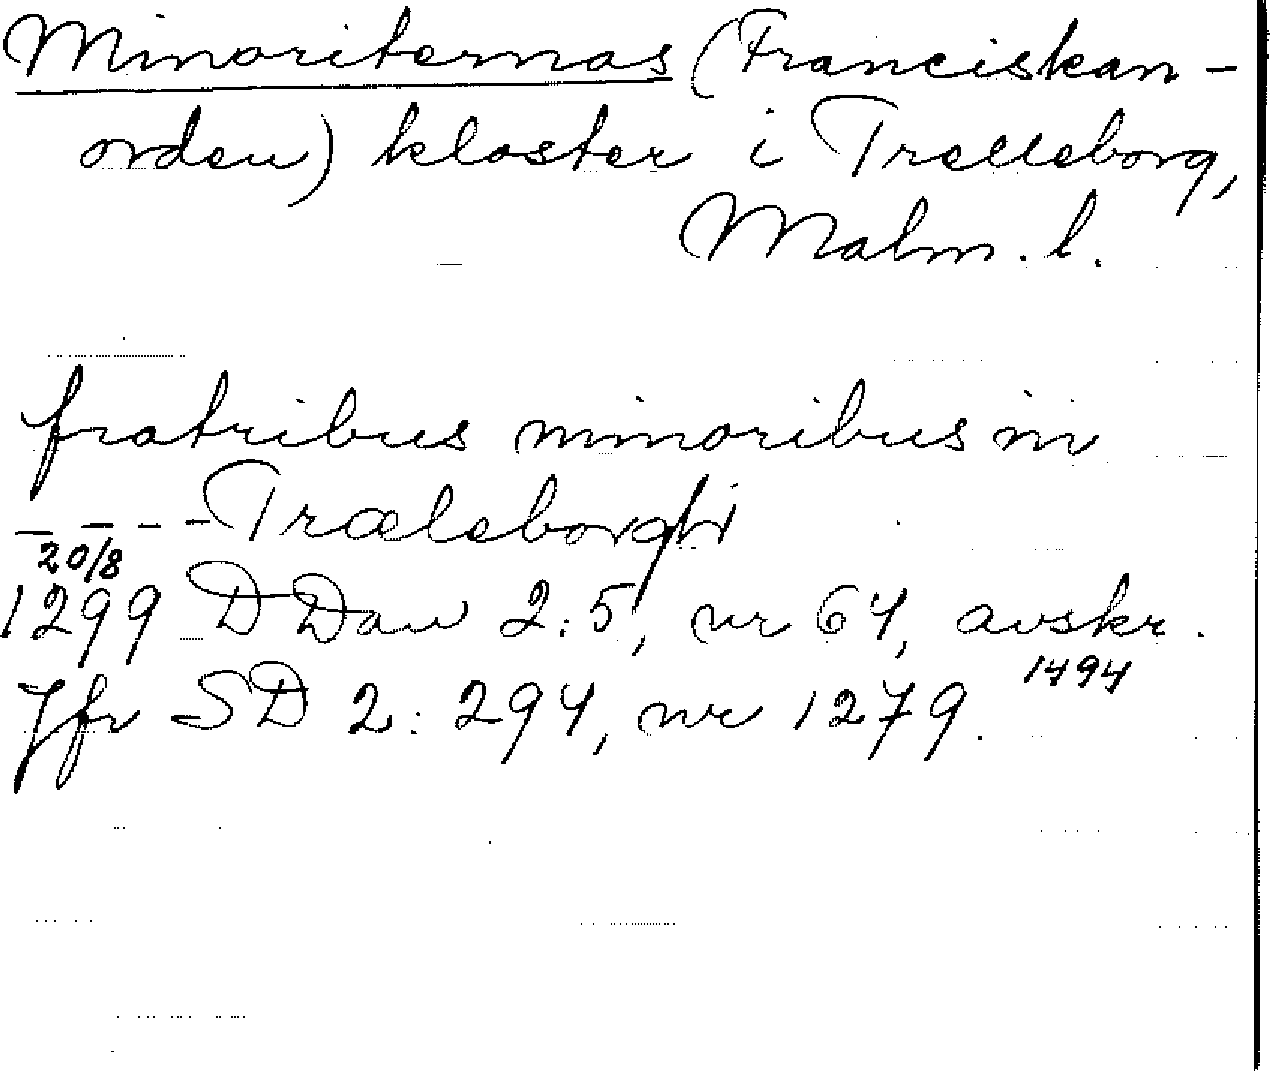 Minoriternas (Franciskan-
orden) kloster i Trelleborg,
Malm. l.
fratribus minoribus in
- - - - Træleborghi
20/8
1299 DDan 2:5, nr 64, avskr.
1494
Jfr SD 2: 294, nr 1279.